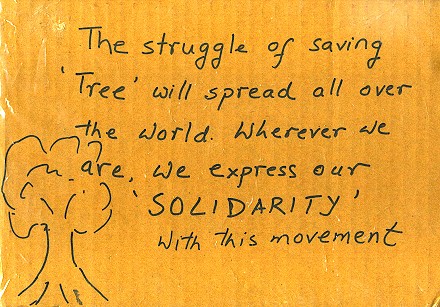 The struggle of saving
'Tree' will spread all over
the world. Wherever we
are, we express our
'SOLIDARITY'
with this movement